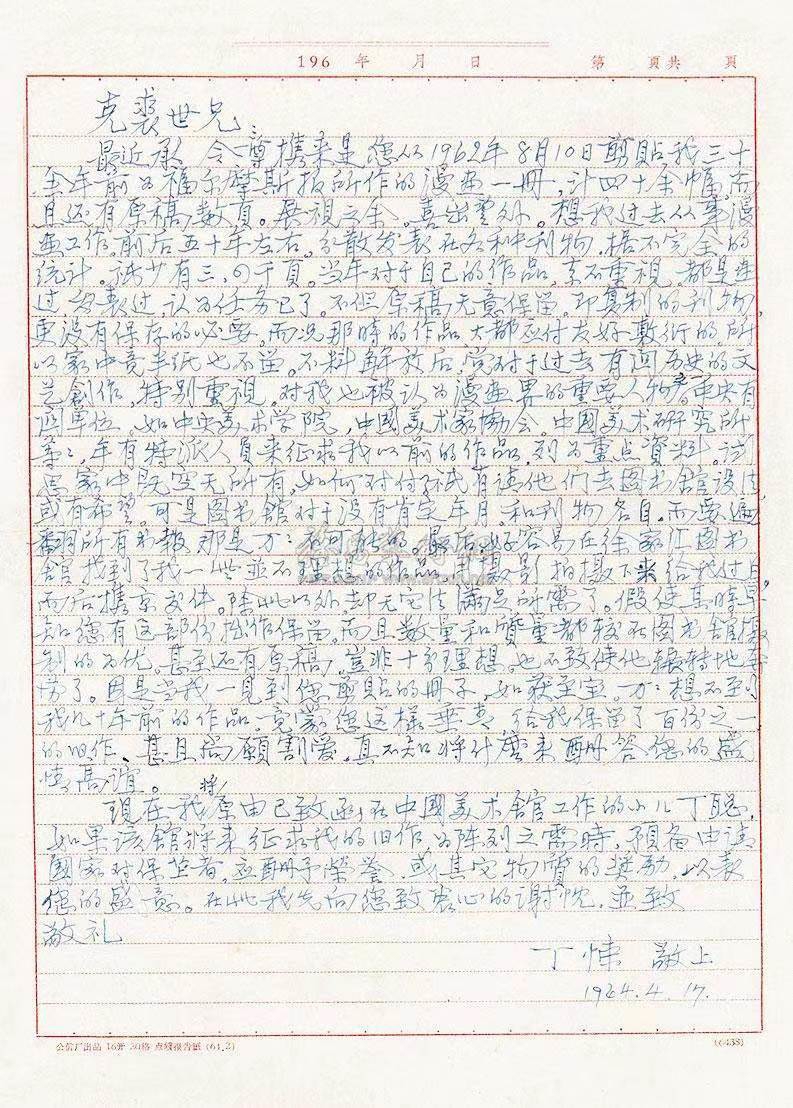 196 年 月 日 第 页共 页
克裘世兄:
最近承 令尊携来是您从1962年8月10日剪贴我三十
余年前为福尔摩斯报所作的漫画一册,计四十余幅。而
且还有原稿数页。展视之余。喜出望外。想我过去从事漫
画工作,前后五十年左右。分散发表在各种刊物,据不完全的
统计。至少有三、四千页。当年对于自己的作品,素不重视。都是画
过,发表过,认为任务已了。不但原稿无意保留。即复制的刊物,
更没有保存的必要。而况那时的作品大都应付友好敷衍的。所
以家中竟半纸也不留。不料解放后,党对于过去有关历史的文
艺创作,特别重视。对我也被认为漫画界的重要人物。中央有
关单位,如中央美术学院,中国美术家协会,中国美术研究所
等:,年有特派人员来征求我以前的作品,列为重点资料。
家中既空无所有,如何对付,祇有请他们去图书馆设法
或有希望。可是图书馆对于没有肯定年月。和刊物名目。而要遍
翻所有书报那是万:不可能的。最后,好容易在徐家汇图书
馆找到了我一些並不理想的作品。摄影拍摄下来给我过目。
而后携京交件。除此以外,却无它法满足所需了。假使其时早
知您有这部份拙作保留。而且数量和质量都较在图书馆摄
制的为优。甚至还有原稿,岂非十分理想。也不致使他辗转地
劳了。因是当我一见到你剪贴的册子,如获至宝。万:想不到
我几十年前的作品。竟蒙您这样垂青 给我保留了百份之一
的旧作、甚且尚愿割爱,真不知将什么来酬答您的盛
情高谊。
现在我将原由已致函在中国美术馆工作的小儿丁聪,
如果该馆将来征求我的旧作,为陈列之需时,预备申请
国家对保竺者。应酬予荣誉,或其它物质的奖励,以表
您的盛意。在此我先向您致衷心的谢忱,並致
敬礼
丁悚 敬上
1964.4.17.
公信厂出品 16开 30格 点线报告纸 (64.2)
(6438)